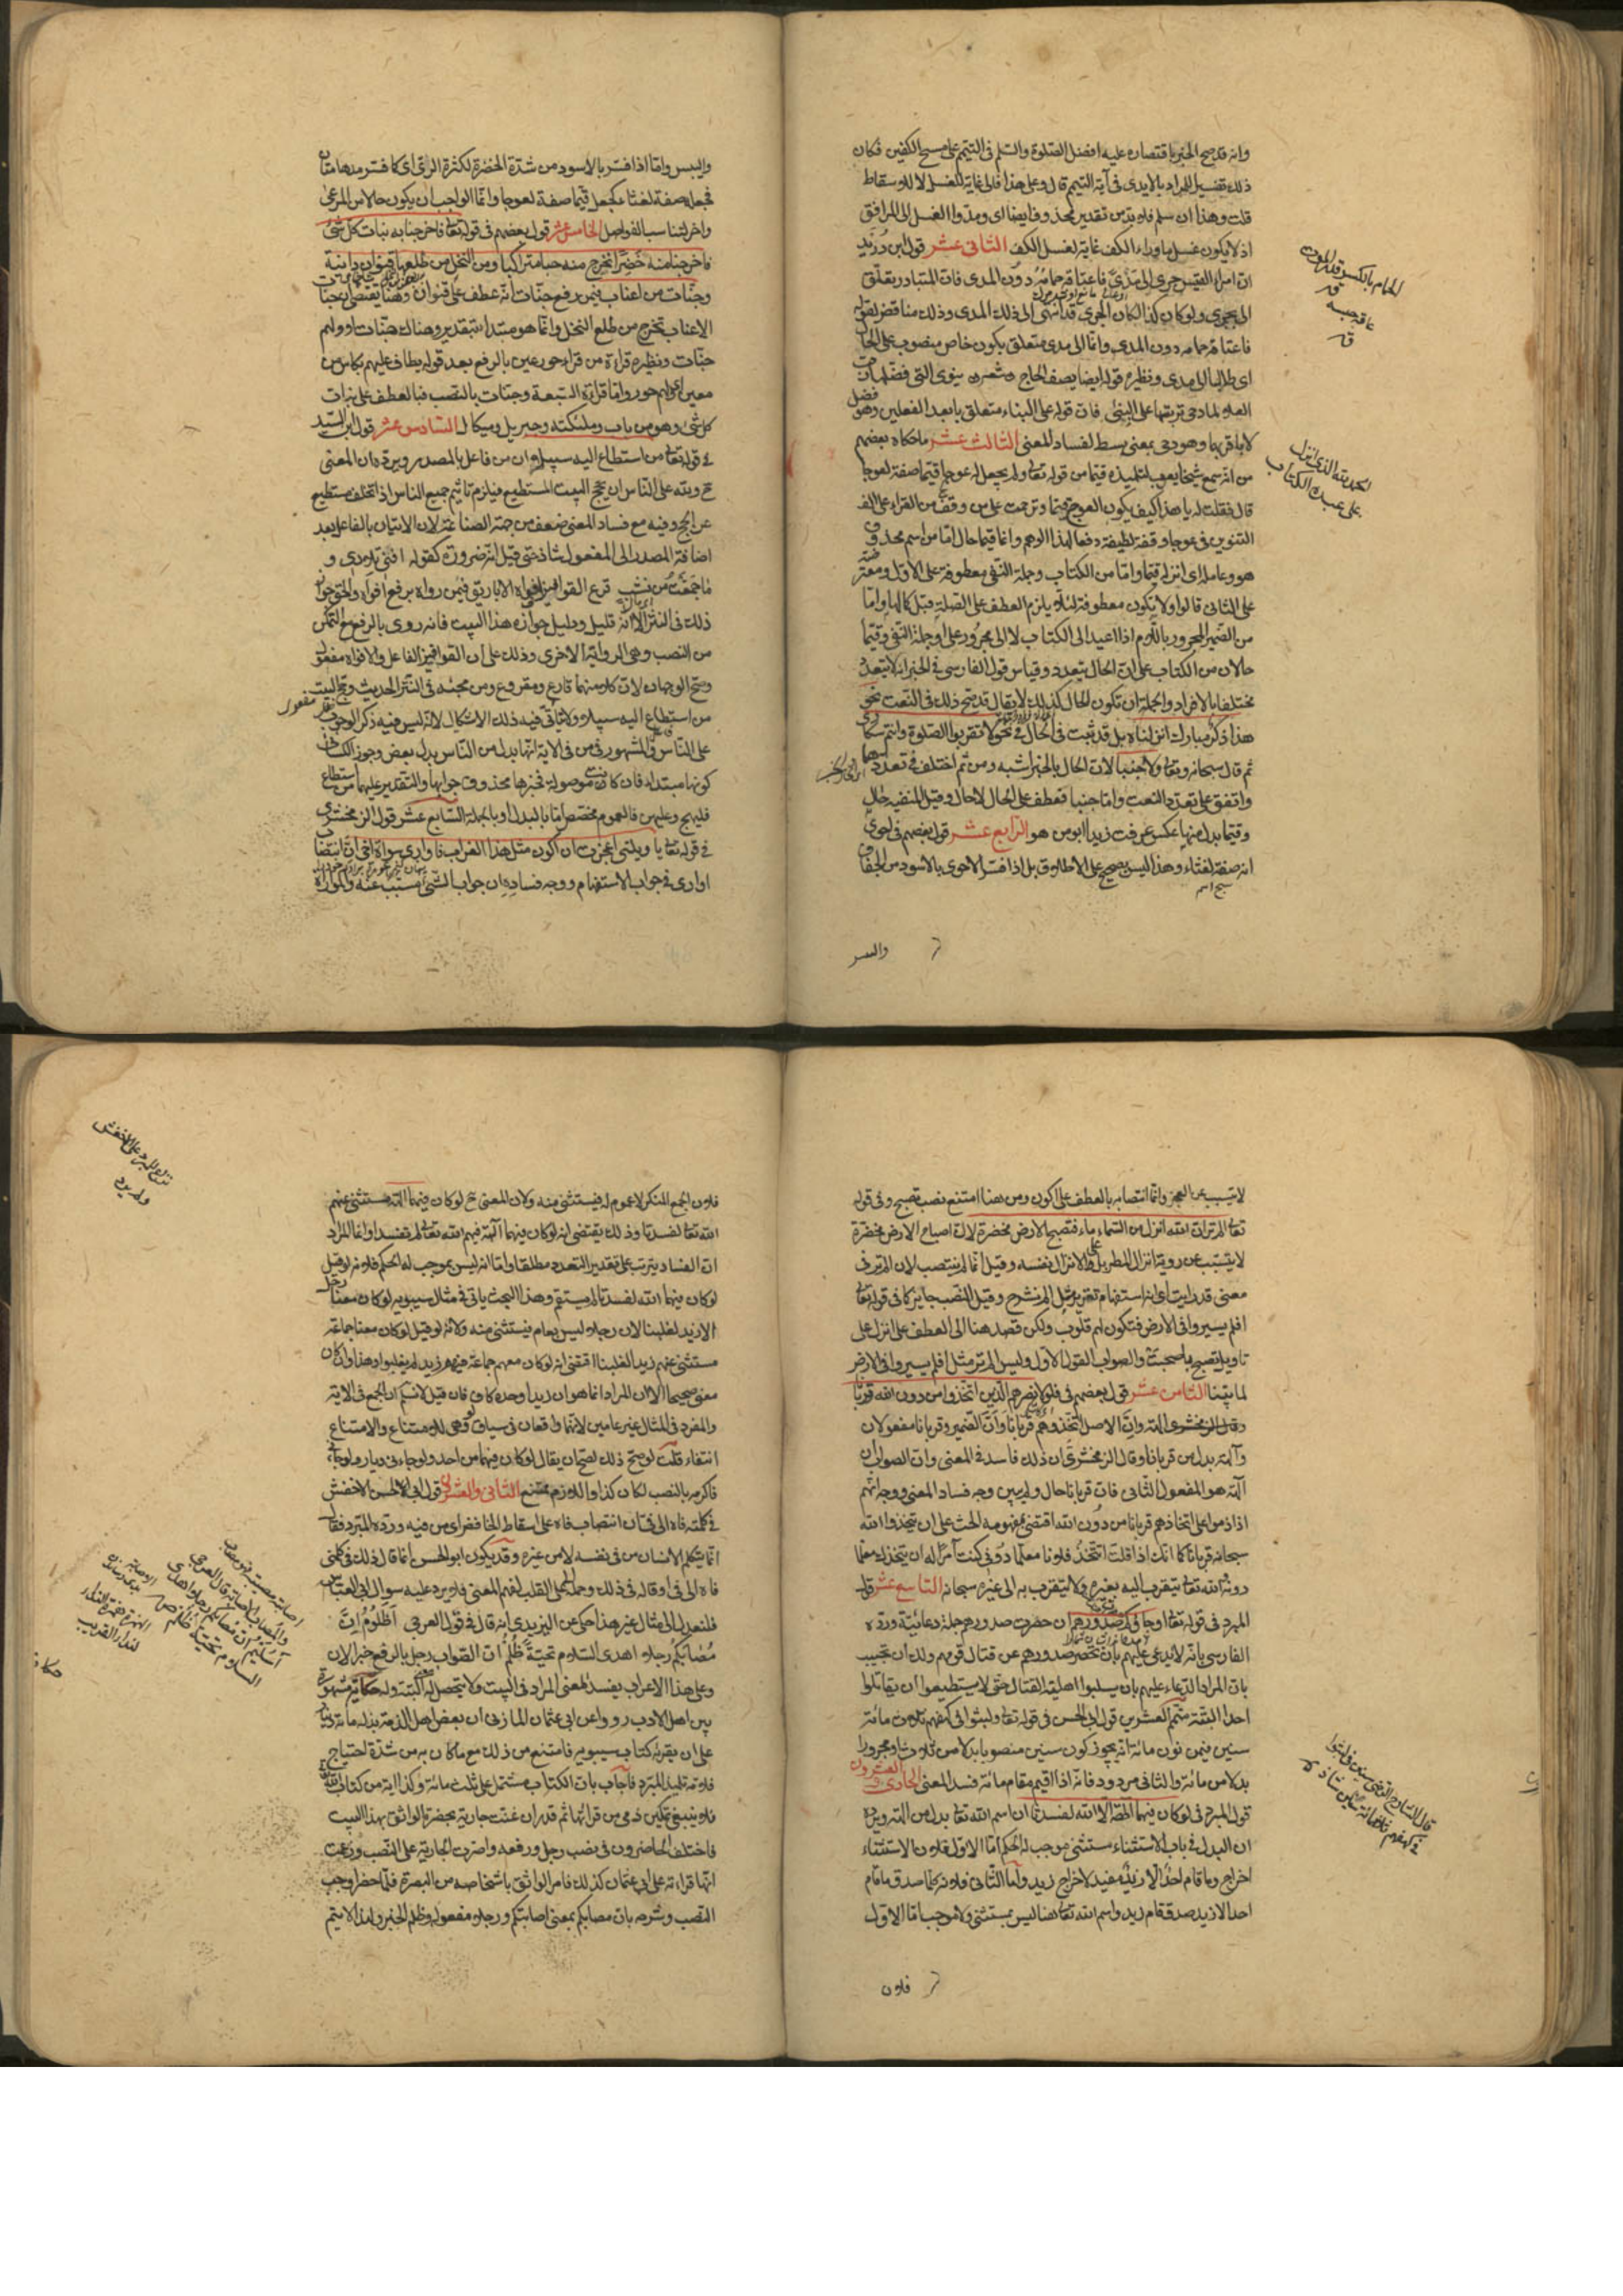 وانه قد صح الخبر باقتصاره عليه افضل الصلوة والسلم فى التيمم على مسح الكفين فكان
ذلك تفسيرا للمراد بالايدى فى آية التيمم قال وعلى هذا فالى غاية للغسل لا للاسقاط
قلت وهذا ان سلم فلا بد من تقدير محذوف ايضا اى ومدوا الغسل الى المرافق
اذ لا يكون غسل ما وراء الكف غاية لغسل الكف الثانى عشر قول ابن دُرَيد
ان امرأ القيس جرى الى مَدًى فاعتاقه حِمامُه دون المدى فان المتبادر تعلّق
الى بجرى ولو كان كذا لكان الجرى قد انتهى الى ذلك المدى وذلك مناقض لقوله
فاعتاقه حمامه دون المدى وانما الى مدى متعلق بكون خاص منصوب على الحال
اى طالبا الى مدى ونظيره قوله ايضا يصف الحاج وشعره ينوى التى فضلها رب
العلى لما دحى تربتها على البِنَى فان قوله على البناء متعلق بابعد الفعلين وهو فضل
لا باقربهما وهو دحى بمعنى بسط لفساد المعنى الثالث عشر ما حكاه بعضهم
من انه سمع شيخا يعرب لتلميذه قيما من قوله تعا ولم يجعل له عوجا قيما صفة لعوجا
قال فقلت له يا هذا كيف يكون العوج قيما وترحمت على من وقف من القراء على الف
التنوين فى عوجا وقفة لطيفة دفعا لهذا الوهم وانما قيما حال اما من اسم محذوف
هو وعامله اى انزله قيما واما من الكتاب وجملة النفى معطوفة على الاول ومعترضة
على الثانى قالوا ولا تكون معطوفة لئلا يلزم العطف على الصلة قبل كمالها واما
من الضمير المجرور باللام اذا اعيد الى الكتاب لا الى مجرور على او جملة النفى وقيما
حالان من الكتاب على ان الحال يتعدد وقياس قول الفارسى فى الخبر انه لا يتعدد
مختلفا بالافراد والجملة ان تكون الحال كذلك لا يقال قد صح ذلك فى النعت نحو
هذا ذكر مبارك انزلناه بل قد ثبت فى الحال فى نحو لا تقربوا الصلوة وانتم سكارى
ثم قال سبحانه وتعا ولا جنبا لان الحال بالخبر اشبه ومن ثم اختلف فى تعددهما
واتفق على تعدد النعت واما جنبا فعطف على الحال لا حال وقيل المنفية حال
وقيما بدل منها عكس عرفت زيدا ابو من هو الرابع عشر قول بعضهم فى احوى
انه صفة لغثاء وهذا ليس بصحيح على الاطلاق بل اذا فسر الاحوى بالاسود من الجفاف
سبح اسم
واليبس
الحمد لله الذى انزل
على عبده الكتاب
واليبس واما اذا فسر بالاسود من شدة الخضرة لكثرة الرى اى كما فسر مدهامتان
فجعله صفة لغثاء كجعل قيما صفة لعوجا وانما الواجب ان يكون حالا من المرعى
واخر لتناسب الفواصل الخامس عشر قول بعضهم فى قوله تعا فاخرجنا به نبات كل شئ
فاخرجنا منه خَضِرًا نخرج منه حبا متراكبا ومن النخل من طلعها قنوان دانية
وجنات من اعناب فيمن رفع جنات انه عطف على قنوان وهذا يقتضى ان جنات
الاعناب تخرج من طلع النخل وانما هو مبتدا بتقدير وهناك جنات او ولهم
جنات ونظيره قراءة من قراء حور عين بالرفع بعد قوله يطاف عليهم بكاس من
معين اى ولهم حور واما قراءة السبعة وجنات بالنصب فبالعطف على نبات
كل شئ وهو من باب وملئكته وجبريل وميكال السادس عشر قول ابن السيد
فى قوله تعا من استطاع اليه سبيلا ان من فاعل بالمصدر ويرده ان المعنى
ح ولله على الناس ان يحج البيت المستطيع فيلزم تاثيم جميع الناس اذا تخلف مستطيع
عن الحج وفيه مع فساد المعنى ضعف من جهة الصناعة لان الاتيان بالفاعل بعد
اضافة المصدر الى المفعول شاذ حتى قيل انه ضرورة كقوله افنى تلادى و
ما جمعت من نشب قرع القوافيز افواه الاباريق فيمن رواه برفع افواه والحق جواز
ذلك فى النثر الا انه قليل ودليل جوازه هذا البيت فانه روى بالرفع مع التمكن
من النصب وهى الرواية الاخرى وذلك على ان القوافيز الفاعل والافواه مفعول
وصح الوجهان لان كلا منهما قارع ومقروع ومن مجيئه فى النثر الحديث وحج البيت
من استطاع اليه سبيلا ولا يتأتى فيه ذلك الاشكال لانه ليس فيه ذكر الوجوب
على الناس والمشهور فى من فى الاية انها بدل من الناس بدل بعض وجوز الكسائى
كونها مبتداء فان كانت موصولة فخبرها محذوف او شرطية فالمحذوف جوابها والتقدير عليهما من استطاع
فليحج وعليهن فالعموم مخصص اما بالبدل او بالجملة السابع عشر قول الزمخشرى
فى قوله تعا يا ويلتى اعجزت ان اكون مثل هذا الغراب فاوارى سواة اخى ان انتصاب
اوارى فى جواب الاستفهام ووجه فساده ان جواب الشئ مسبب عنه والمواراة
لا تتسبب عن العجز وانما انتصابه بالعطف على اكون ومن هنا امتنع نصب تصبح فى قوله
تعا الم تر ان الله انزل من السماء ماء فتصبح الارض مخضرة لان اصباح الارض مخضرة
لا يتسبب عن روية انزال المطر بل على الانزال نفسه وقيل انما لم ينتصب لان الم تر فى
معنى قد رايت اى انه استفهام تقرير مثل الم نشرح وقيل النصب جايز كما فى قوله تعا
افلم يسيروا فى الارض فتكون لهم قلوب ولكن قصد هنا الى العطف على انزل على
تاويل تصبح باصبحت والصواب القول الاول وليس الم تر مثل افلم يسيروا فى الارض
لما بيّنا الثامن عشر قول بعضهم فى فلولا نصرهم الذين اتخذوا من دون الله قربانا
آلهة ان الاصل اتخذوهم قربانا وان الضمير وقربانا مفعولان
وآلهة بدل من قربانا وقال الزمخشرى ان ذلك فاسد فى المعنى وان الصواب ان
آلهة هو المفعول الثانى فان قربانا حال ولم يبين وجه فساد المعنى ووجهه انهم
اذا ذموا على اتخاذهم قربانا من دون الله اقتضى مفهومه الحث على ان يتخذوا الله
سبحانه قربانا كما انك اذا قلت اتتخذ فلانا معلما دونى كنت آمرا له ان يتخذك معلما
دونه والله تعا يتقرب اليه بغيره ولا يتقرب به الى غيره سبحانه التاسع عشر قول
المبرد فى قوله تعا او جاؤكم حصرت صدورهم ان حصرت صدورهم جملة دعائية ورده
الفارسى بانه لا يدعى عليهم بان تحصر صدورهم عن قتال قومهم ولك ان تجيب
بان المراد الدعاء عليهم بان يسلبوا اهلية القتال حتى لا يستطيعوا ان يقاتلوا
احدا البتة متمم العشرين قول ابى الحسن فى قوله تعا ولبثوا فى كهفهم ثلاث مائة
سنين فيمن نون مائة انه يجوز كون سنين منصوبا بدلا من ثلاث او مجرورا
بدلا من مائة والثانى مردود فانه اذا اقيم مقام مائة فسد المعنى الحادى والعشرون
قول المبرد فى لو كان فيهما آلهة الا الله لفسدتا ان اسم الله تعا بدل من آلهة ويرده
ان البدل فى باب الاستثناء مستثنى موجب له الحكم اما الاول فلان الاستثناء
اخراج وما قام احد الا زيد مفيد لاخراج زيد واما الثانى فلانه كلما صدق ما قام
احد الا زيد صدق قام زيد واسم الله تعا هنا ليس بمستثنى ولا موجب اما الاول
فلان
فلان الجمع المنكر لا عموم له فيستثنى منه ولان المعنى ح لو كان فيهما آلهة مستثنى عنهم
الله تعا لفسدتا وذلك يقتضى انه لو كان فيهما آلهة فيهم الله تعا لم تفسدا وانما المراد
ان الفساد يترتب على تقدير التعدد مطلقا واما انه ليس بموجب له الحكم فلانه لو قيل
لو كان فيهما الله لفسدتا لم يستقم وهذا البحث ياتى فى مثال سيبويه لو كان معنا رجل
الا زيد لغلبنا لان رجلا ليس بعام فيستثنى منه ولانه لو قيل لو كان معنا جماعة
مستثنى عنهم زيد لغلبنا اقتضى انه لو كان معهم جماعة فيهم زيد لم يغلبوا وهذا وان كان
معنى صحيحا الا ان المراد انما هو ان زيدا وحده كاف فان قيل لا نسلم ان الجمع فى الاية
والمفرد فى المثال غير عامين لانهما واقعان فى سياق لو وهى للامتناع والامتناع
انتفاء قلت لو صح ذلك لصح ان يقال لو كان فيهما من احد ولو جاءنى ديار ولو جاءنى
فاكرمه بالنصب لكان كذا واللازم ممتنع الثانى والعشرون قول ابى الحسن الاخفش
فى كلمته فاه الى فى ان انتصاب فاه على اسقاط الخافض اى من فيه ورده المبرد فقال
انما يتكلم الانسان من فى نفسه لا من غيره وقد يكون ابو الحسن انما قال ذلك فى كلمنى
فاه الى فى او قاله فى ذلك وحمله على القلب لفهم المعنى فلا يرد عليه سوال ابى العباس
فلنعدل الى مثال غير هذا حكى عن اليزيدى انه قال فى قول العرجى أظلوم ان
مُصابَكُم رجلا اهدى السلام تحيةً ظُلم ان الصواب رجل بالرفع خبرا لان
وعلى هذا الاعراب يفسد المعنى المراد فى البيت ولا يتحصل له معنى البتة وله حكاية مشهورة
بين اهل الادب رووا عن ابى عثمان المازنى ان بعض اهل الذمة بذل له مائة دينار
على ان يقرئه كتاب سيبويه فامتنع من ذلك مع ما كان به من شدة احتياج
فلامه تلميذه المبرد فاجاب بان الكتاب مشتمل على ثلث مائة وكذا اية من كتاب الله
فلا ينبغى تمكين ذمى من قرائتها ثم قدر ان غنت جارية بحضرة الواثق بهذا البيت
فاختلف الحاضرون فى نصب رجل ورفعه واصرت الجارية على النصب وزعمت
انها قراءته على ابى عثمان كذلك فامر الواثق باشخاصه من البصرة فلما حضر اوجب
النصب وشرحه بان مصابكم بمعنى اصابتكم ورجلا مفعوله وظلم الخبر ولهذا لا يتم